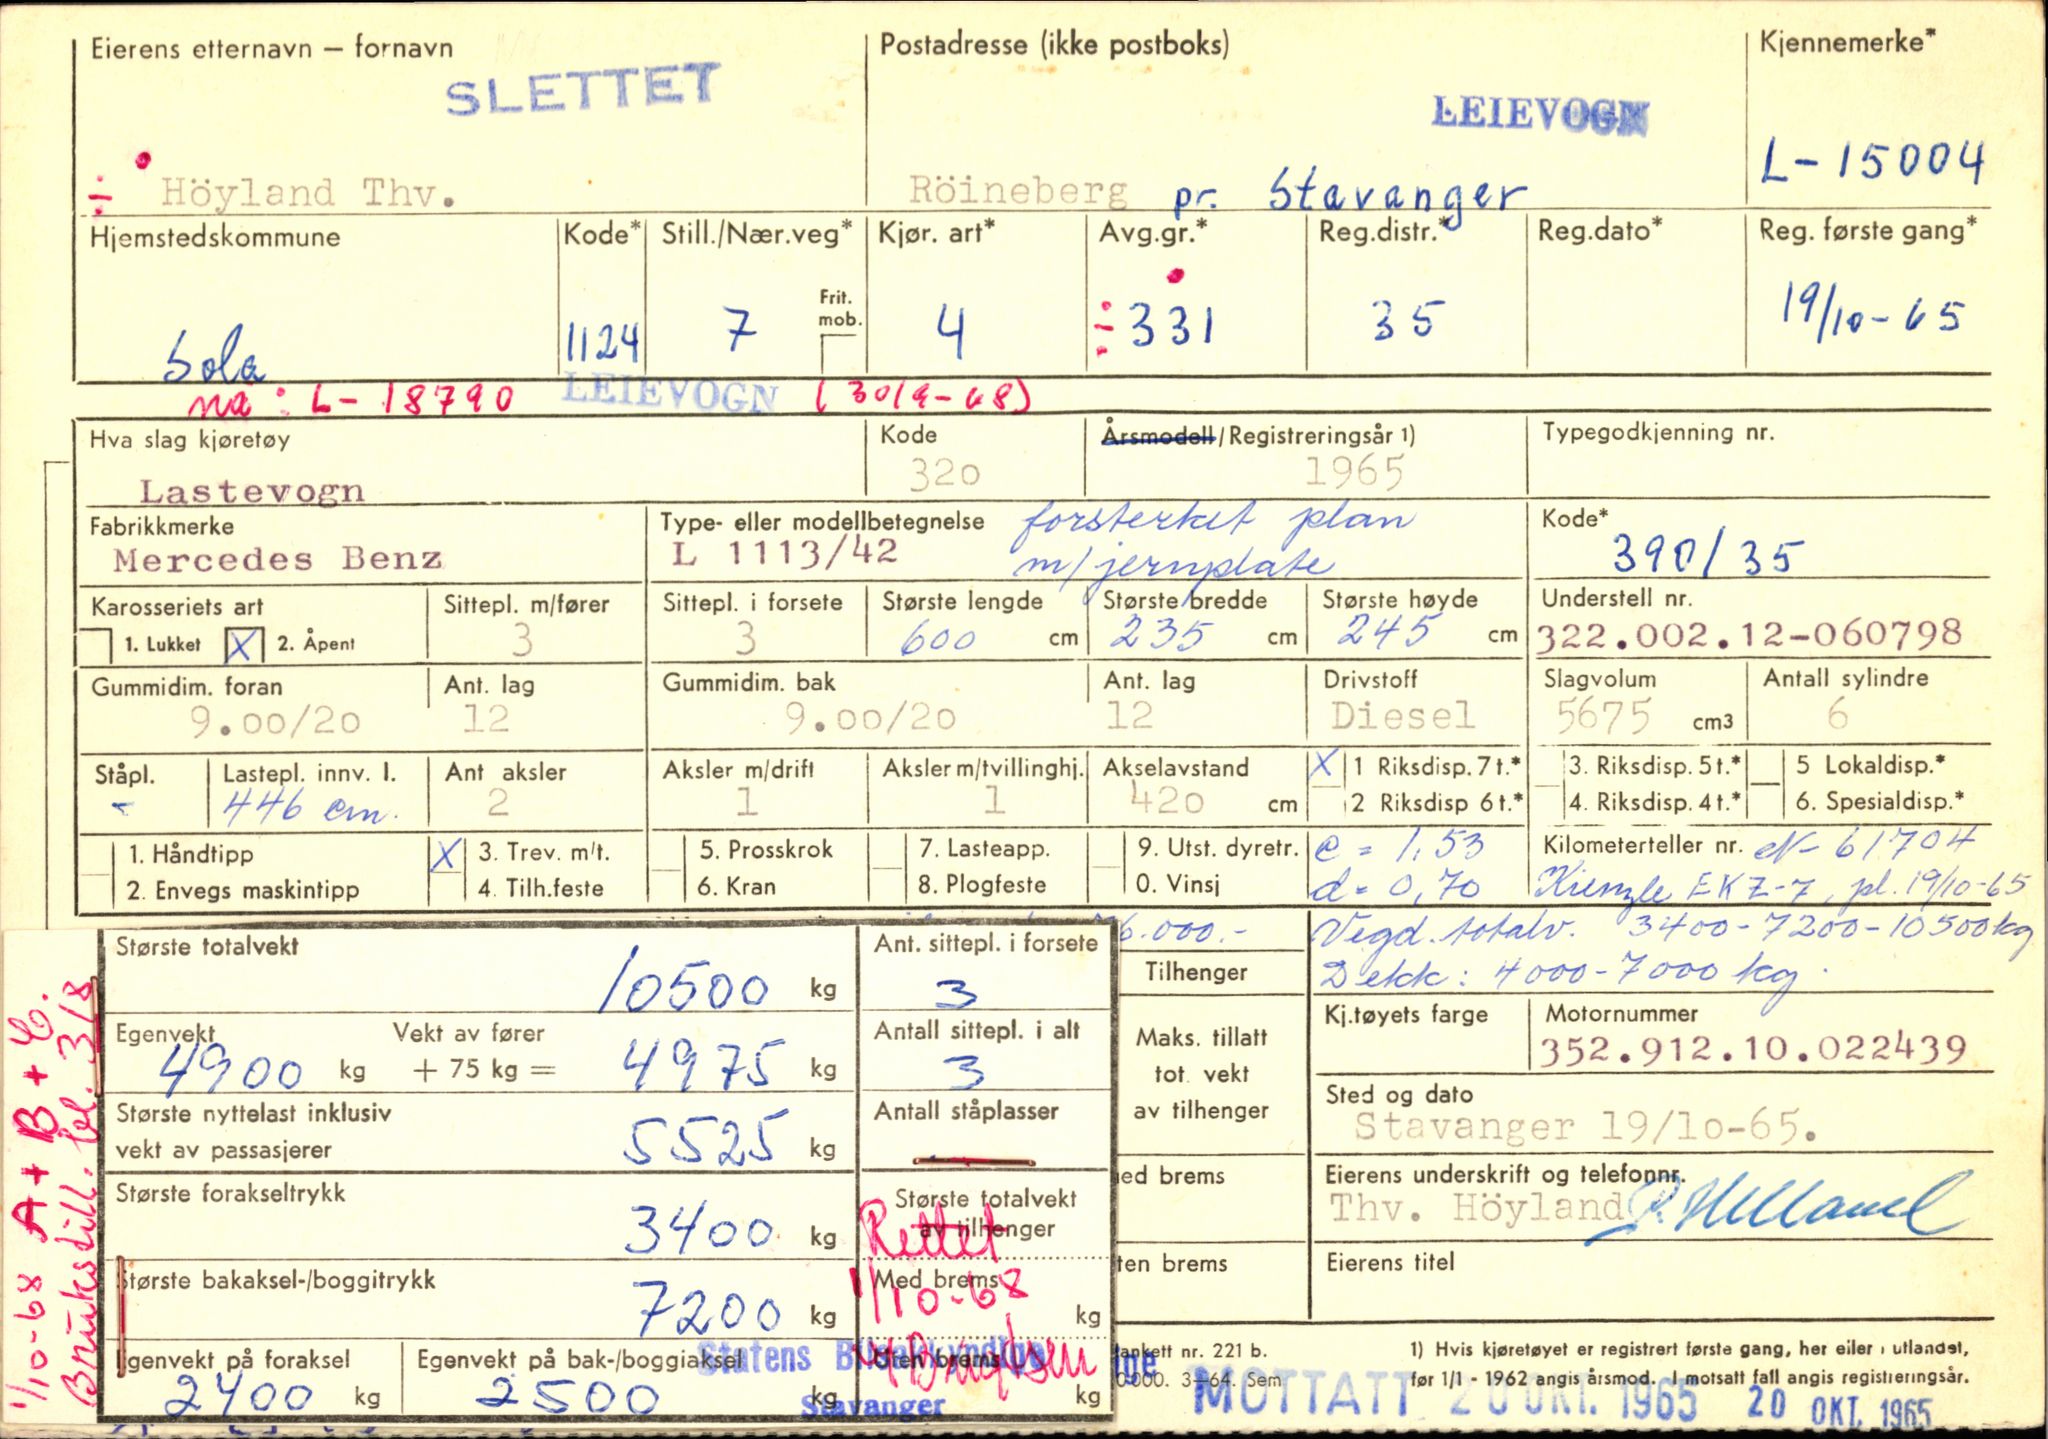 Eierens etternavn — fornavn
Postadresse (ikke postboks)
Kjennemerke*
SLETTET
LEIEVOGN
÷ Höyland Thv.
Röineberg pr. Stavanger
L-15004
Hjemstedskommune
Kode*
Still./Nær.veg*
Kjør. art*
Avg.gr.*
Reg.distr.*
Reg.dato*
Reg. første gang*
Sola
1124
7
Frit. mob.
4
÷ 331
35
19/10-65
nå: L-18790
LEIEVOGN
(30/9-68)
Hva slag kjøretøy
Kode
Årsmodell/Registreringsår 1)
Typegodkjenning nr.
Lastevogn
320
1965
Fabrikkmerke
Type- eller modellbetegnelse
forsterket plan
Kode*
Mercedes Benz
L 1113/42
m/jernplate
390/35
Karosseriets art
Sittepl. m/fører
Sittepl. i forsete
Største lengde
Største bredde
Største høyde
Understell nr.
1. Lukket X 2. Åpent
3
3
600 cm
235 cm
245 cm
322.002.12-060798
Gummidim. foran
Ant. lag
Gummidim. bak
Ant. lag
Drivstoff
Slagvolum
Antall sylindre
9.00/20
12
9.00/20
12
Diesel
5675 cm3
6
Ståpl.
Lastepl. innv. l.
Ant aksler
Aksler m/drift
Aksler m/tvillinghj.
Akselavstand
X 1 Riksdisp. 7 t.*
3. Riksdisp. 5 t.*
5 Lokaldisp.*
-
446 cm.
2
1
1
420 cm
2 Riksdisp 6 t.*
4. Riksdisp. 4 t.*
6. Spesialdisp.*
1. Håndtipp
X 3. Trev. m/t.
5. Prosskrok
7. Lasteapp.
9. Utst. dyretr.
c = 1,53
Kilometerteller nr. N- 61704
2. Envegs maskintipp
4. Tilh.feste
6. Kran
8. Plogfeste
0. Vinsj
d = 0,70
Kienzle EKZ-7, pl. 19/10-65
6.000.-
Vegd. totalv. 3400-7200-10500 kg
Dekk: 4000-7000 kg.
Største totalvekt
10500 kg
Ant. sittepl. i forsete
3
Tilhenger
Egenvekt
4900 kg
Vekt av fører
+ 75 kg =
4975 kg
Antall sittepl. i alt
3
Maks. tillatt
tot. vekt
av tilhenger
Kj.tøyets farge
Motornummer
352.912.10.022439
Største nyttelast inklusiv
vekt av passasjerer
5525 kg
Antall ståplasser
Sted og dato
Stavanger 19/10-65.
Største forakseltrykk
3400 kg
Største totalvekt
av tilhenger
ed brems
Eierens underskrift og telefonnr.
Thv. Höyland
Rettet
1/10-68
Største bakaksel-/boggitrykk
7200 kg
Med brems
kg
ten brems
Eierens titel
Egenvekt på foraksel
2400 kg
Egenvekt på bak-/boggiaksel
2500 kg
Uten brems
kg
Statens Bilsakkyndige
Stavanger
ankett nr. 221 b.
0 000. 3—64. Sem
1) Hvis kjøretøyet er registrert første gang, her eller i utlandet,
før 1/1 - 1962 angis årsmod. I motsatt fall angis registreringsår.
MOTTATT 20 OKT. 1965
20 OKT. 1965
1/10-68 A+B+C.
Bruksdill. bl. 3/8